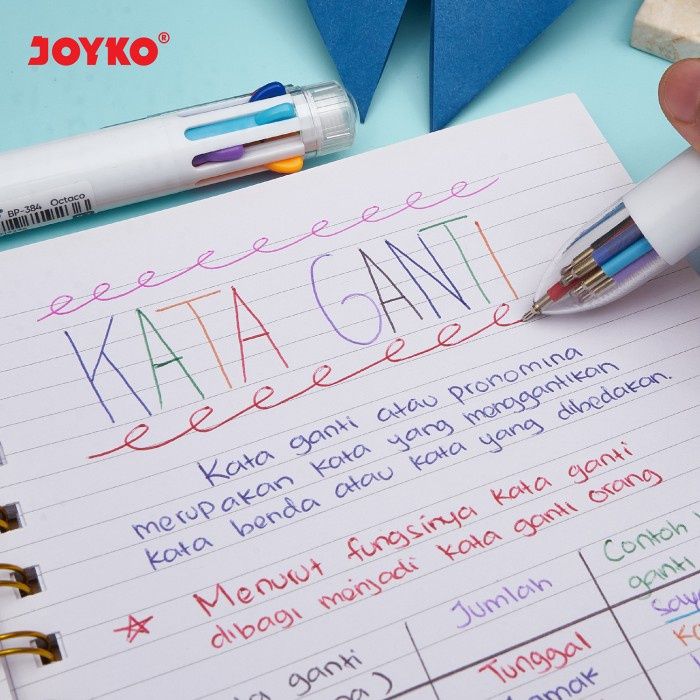 JOYKO®
BP-384 Octaco
KATA GANTI
Kata ganti atau pronomina
merupakan kata yang menggantikan
kata benda atau kata yang dibedakan.
Menurut fungsinya kata ganti
dibagi menjadi kata ganti orang
Jumlah
Contoh
ganti
ganti
Tunggal